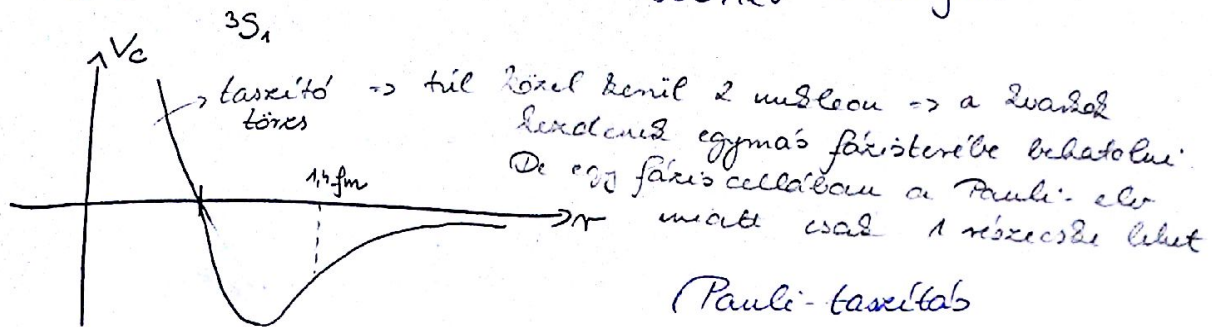 ³S₁
V_c
taszító => túl közel kerül 2 nukleon => a kvarkok
törzs
kezdenek egymás fázisterébe behatolni.
De egy fáziscellában a Pauli-elv
1,4 fm
r
miatt csak 1 részecske lehet
(Pauli-taszítás